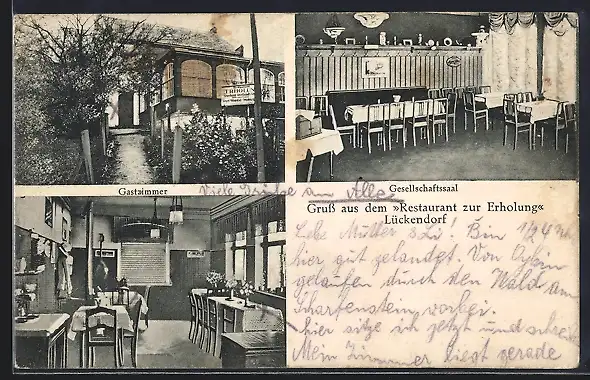 ERHOLUNG
Gastzimmer
Gesellschaftssaal
Viele Grüße an Alle
Gruß aus dem »Restaurant zur Erholung«
Lückendorf
Liebe Mutter u Li! Bin
hier gut gelandet. Von Oybin
gelaufen durch den Wald am
Scharfenstein vorbei.
hier sitze ich jetzt und schreibe
Mein Zimmer liegt gerade